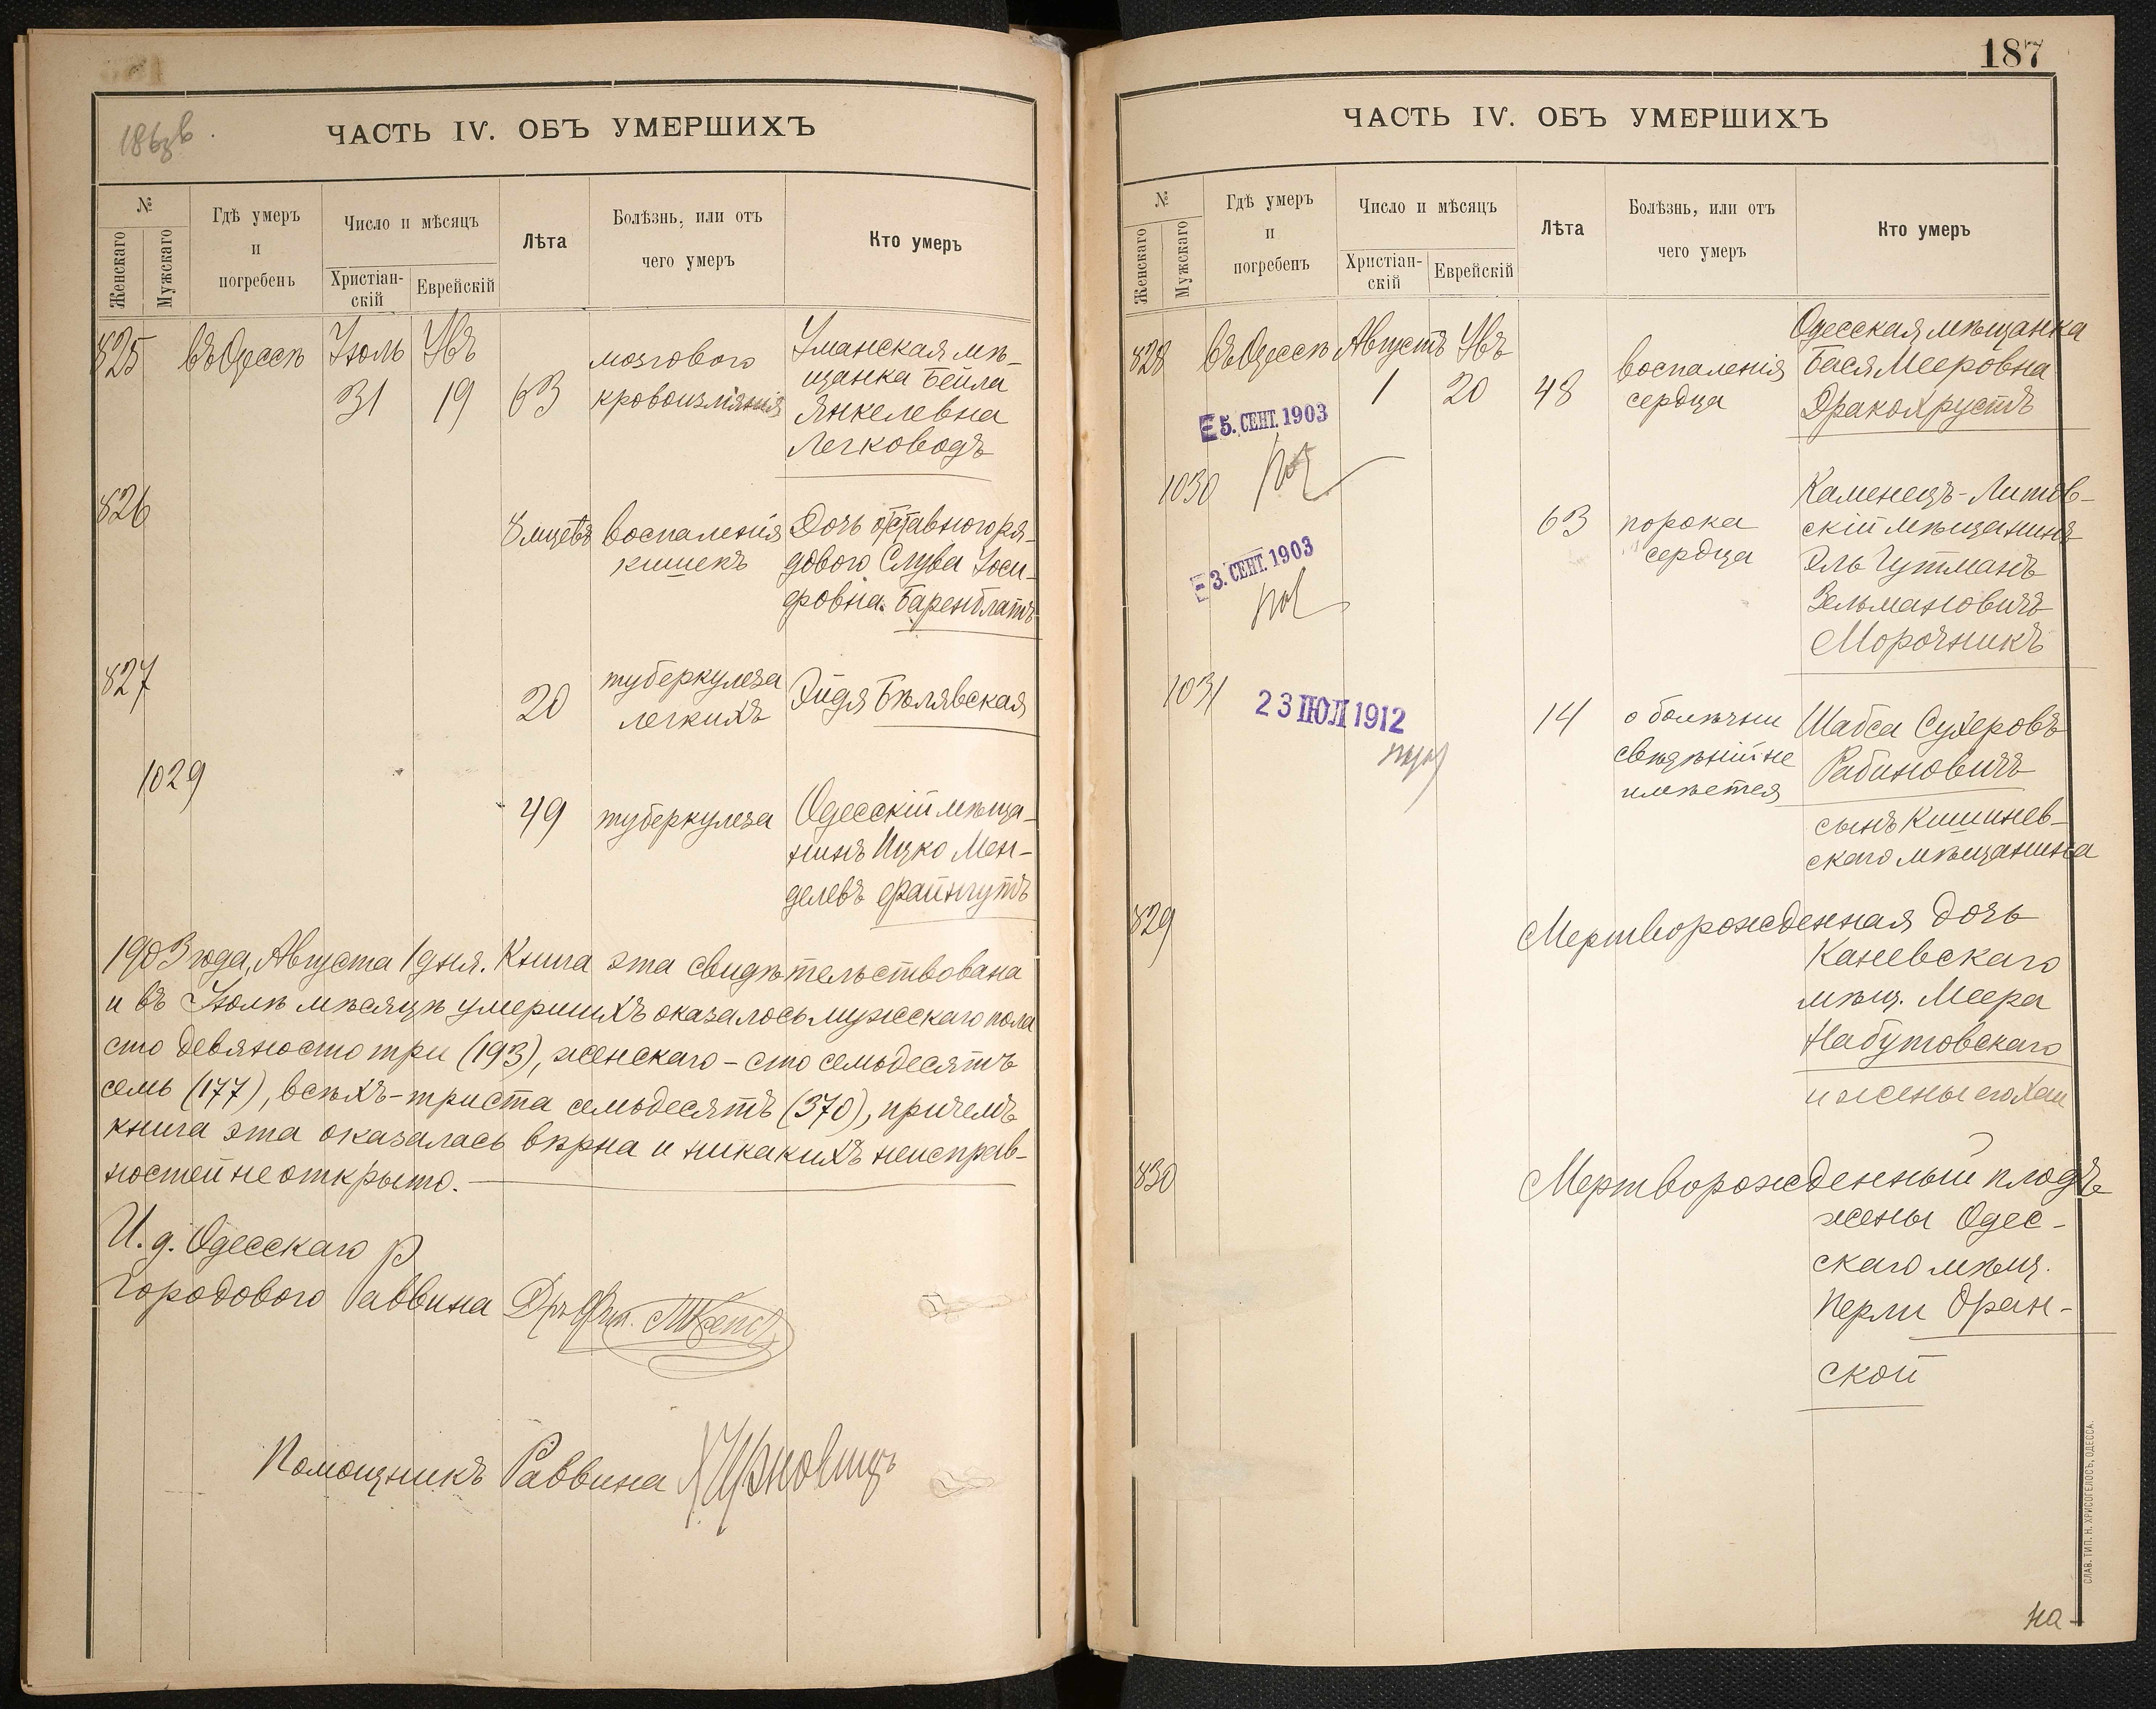 186 об.
ЧАСТЬ IV. ОБЪ УМЕРШИХЪ
№
Женскаго
Мужскаго
Гдѣ умеръ
и
погребенъ
Число и мѣсяцъ
Христіан-
скій
Еврейскій
Лѣта
Болѣзнь, или отъ
чего умеръ
Кто умеръ
825 въ Одессѣ Іюль Убъ
31 19 63
мозгового
кровоизліянія
Уманская мѣ-
щанка Бейла
Янкелевна
Легководъ
826
8 мцевъ
воспаленія
кишекъ
Дочь отставного ря-
дового Слува Іоси-
фовна Баренблатъ
827
20
туберкулеза
легкихъ
Эйдя Бѣлявская
1029
49
туберкулеза
Одесскій мѣща-
нинъ Ицко Мен-
делевъ Файнгутъ
1903 года, Августа 1 дня. Книга эта свидѣтельствована
и въ Іюлѣ мѣсяцѣ умершихъ оказалось мужескаго пола
сто девяносто три (193), женскаго - сто семьдесятъ
семь (177), всѣхъ - триста семьдесятъ (370), причемъ
книга эта оказалась вѣрна и никакихъ неисправ-
ностей не открыто.
И. д. Одесскаго
Городового Раввина
Помощникъ Раввина
187
ЧАСТЬ IV. ОБЪ УМЕРШИХЪ
№
Женскаго
Мужскаго
Гдѣ умеръ
и
погребенъ
Число и мѣсяцъ
Христіан-
скій
Еврейскій
Лѣта
Болѣзнь, или отъ
чего умеръ
Кто умеръ
828 въ Одессѣ Августъ Убъ
1 20 48
воспаленія
сердца
Одесская мѣщанка
Бася Мееровна
Дракохрустъ
5. СЕНТ. 1903
1030
63
порока
сердца
Каменецъ-Литов-
скій мѣщанинъ
Эль Гутманъ
Зельмановичъ
Морочникъ
3. СЕНТ. 1903
1031
23 ІЮЛ 1912
14
о болѣзни
свѣдѣній не
имѣется
Шабса Сухеровъ
Рабиновичъ
сынъ Кишинев-
скаго мѣщанина
829
Мертворожденная дочь
Каневскаго
мѣщ. Меера
Набутовскаго
и жены его Хаи
830
Мертворожденный плодъ
жены Одес-
скаго мѣщ.
Перли Оран-
ской
СЛАВ. ТИП. Н. ХРИСОГЕЛОСЪ, ОДЕССА.
На-